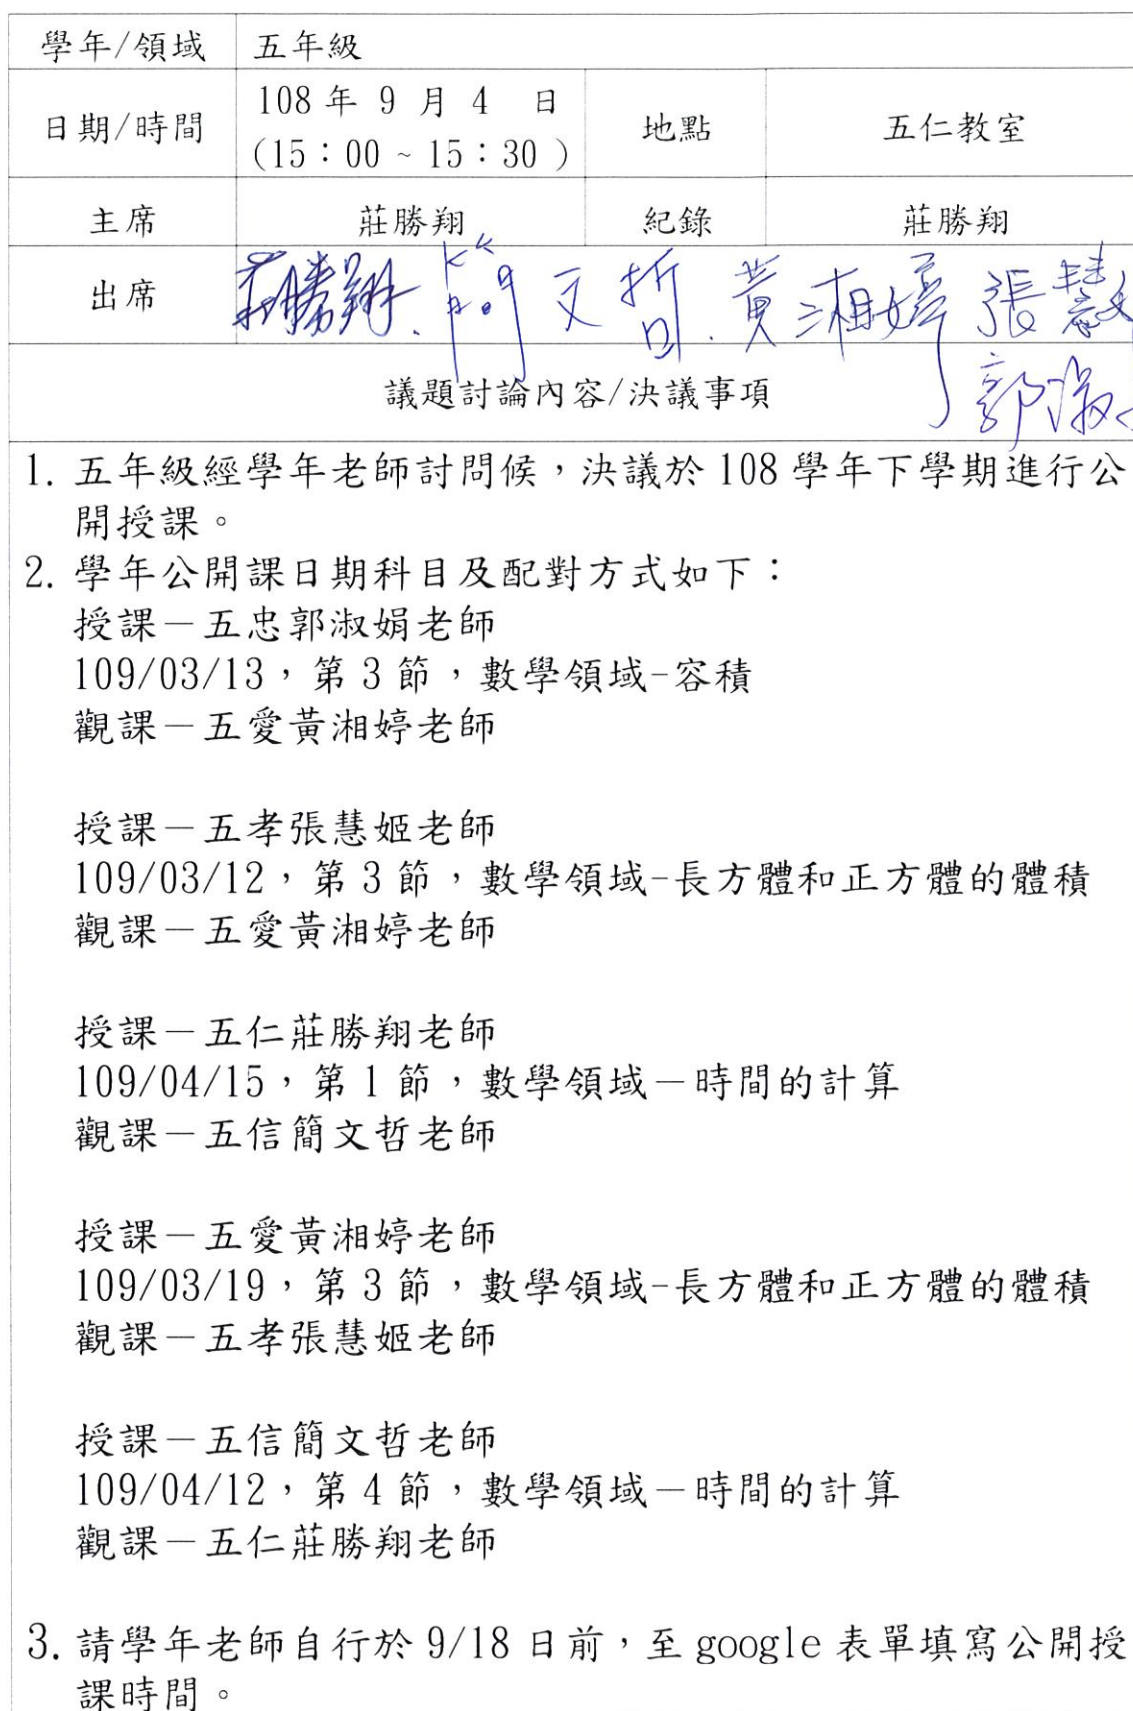 學年/領域 五年級
日期/時間 108 年 9 月 4 日 (15：00 ~ 15：30 ) 地點 五仁教室
主席 莊勝翔 紀錄 莊勝翔
出席 莊勝翔. 簡文哲. 黃湘婷 張慧
郭淑
議題討論內容/決議事項
1. 五年級經學年老師討問候，決議於 108 學年下學期進行公
開授課。
2. 學年公開課日期科目及配對方式如下：
授課－五忠郭淑娟老師
109/03/13，第 3 節，數學領域-容積
觀課－五愛黃湘婷老師
授課－五孝張慧姬老師
109/03/12，第 3 節，數學領域-長方體和正方體的體積
觀課－五愛黃湘婷老師
授課－五仁莊勝翔老師
109/04/15，第 1 節，數學領域－時間的計算
觀課－五信簡文哲老師
授課－五愛黃湘婷老師
109/03/19，第 3 節，數學領域-長方體和正方體的體積
觀課－五孝張慧姬老師
授課－五信簡文哲老師
109/04/12，第 4 節，數學領域－時間的計算
觀課－五仁莊勝翔老師
3. 請學年老師自行於 9/18 日前，至 google 表單填寫公開授
課時間。